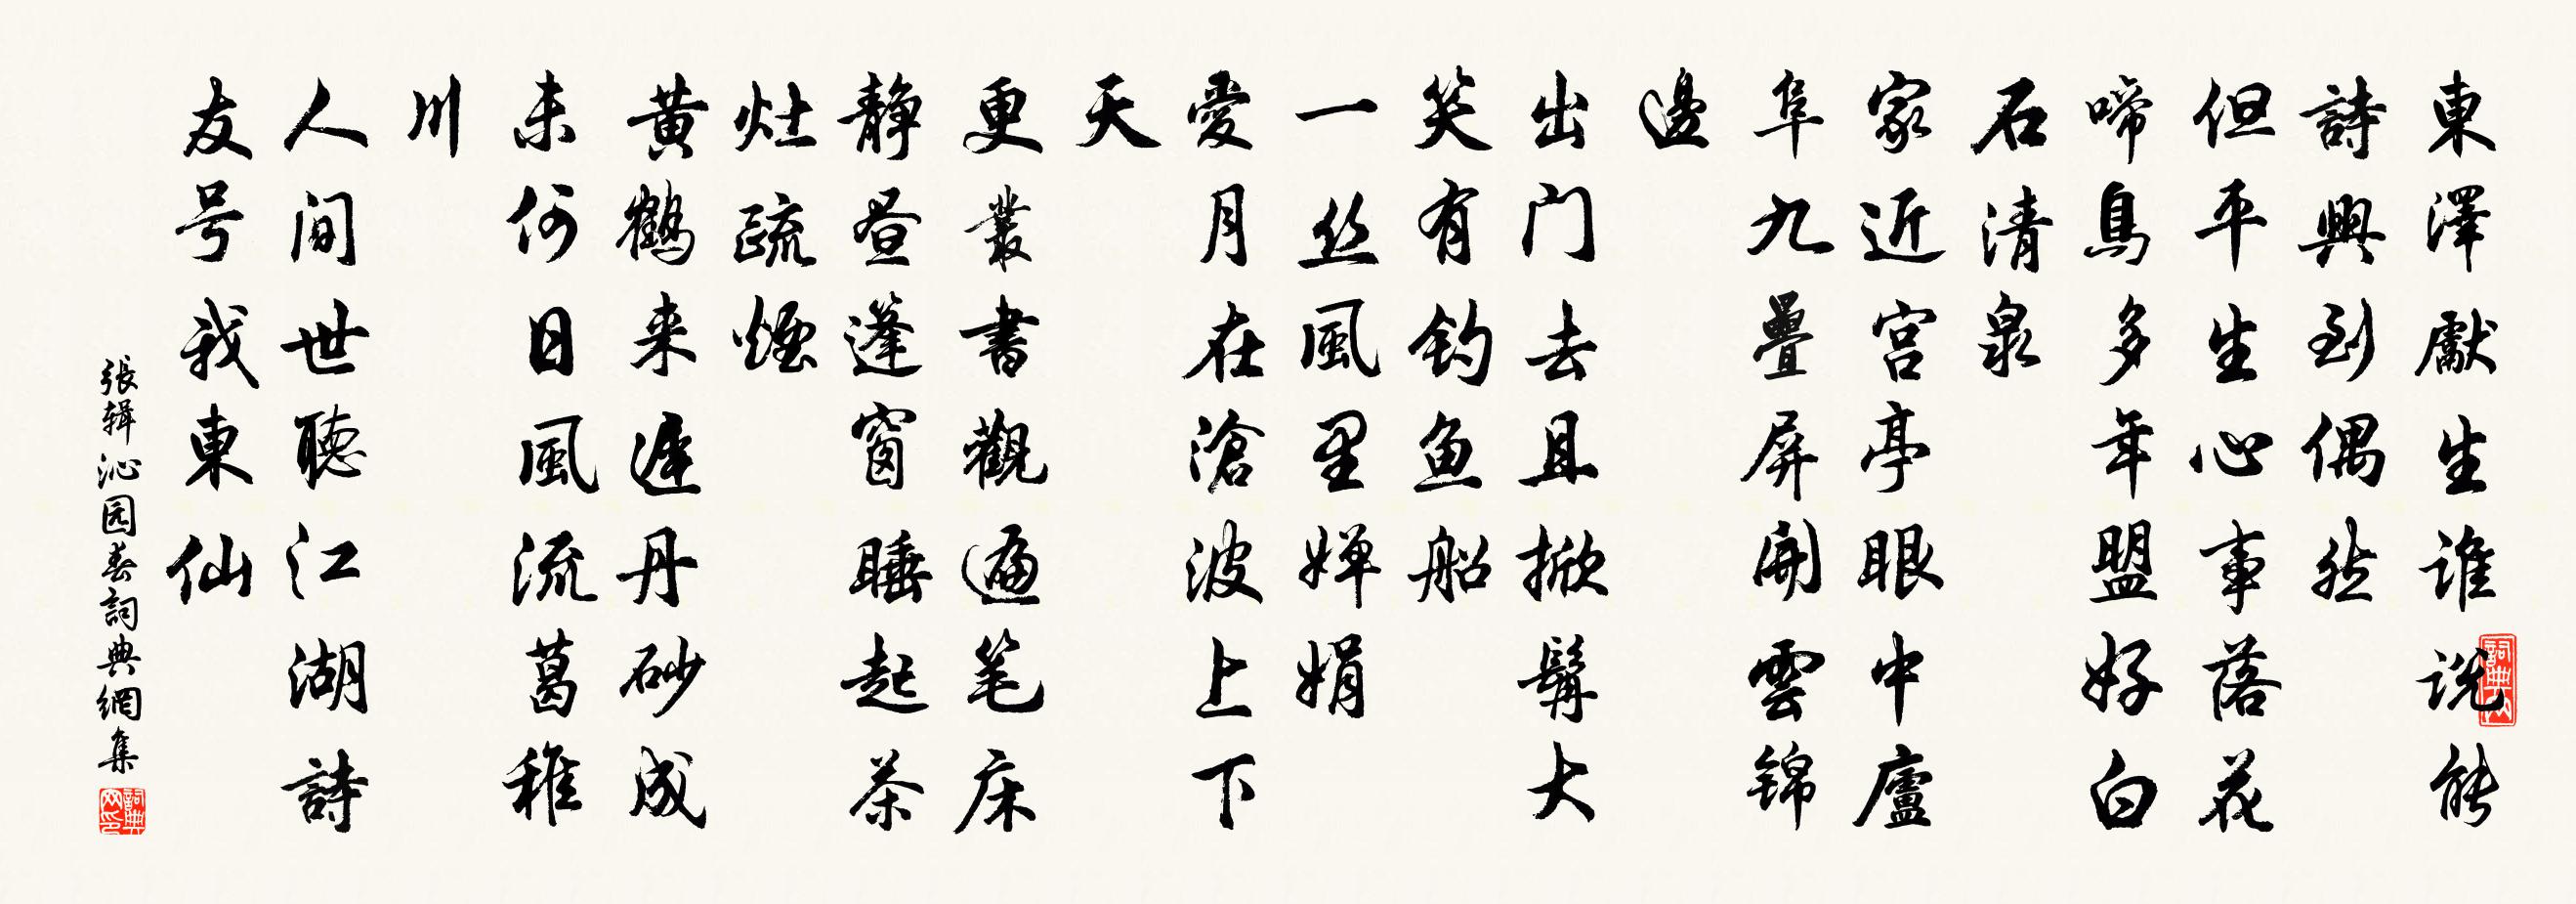 東澤獻生誰說能
詩興到偶然
但平生心事落花
啼鳥多年盟好白
石清泉
家近宫亭眼中廬
阜九疊屏開雲錦
邊
出门去且掀髯大
笑有钓鱼船
一丝風里婵娟
愛月在滄波上下
天
更叢書觀遍笔床
静昼蓬窗睡起茶
灶疏煙
黄鶴来遲丹砂成
未何日風流葛稚
川
人间世聽江湖詩
友号我東仙
張辑沁园春詞典網集
詞典网
詞典网印